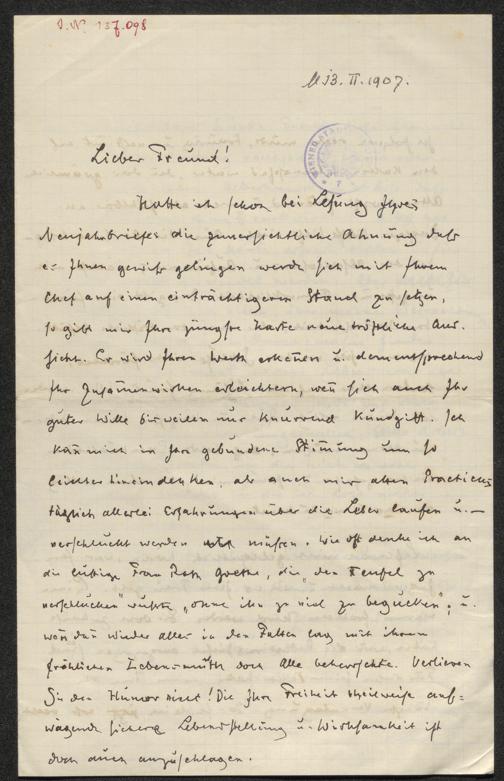 I.N. 137.098
13. II. 1907.
Lieber Freund!
Hatte ich schon bei Lesung Ihres
Neujahrbriefes die zuversichtliche Ahnung daß
es Ihnen gewiß gelingen werde sich mit Ihrem
Chef auf einen einträchtigeren Stand zu setzen,
so gibt mir Ihre jüngste Karte neue tröstliche Aus-
sicht. Er wird Ihren Werth erkennen u. dementsprechend
Ihr Zusammenwirken erleichtern, wenn sich auch Ihr
guter Wille bisweilen nur knurrend kundgibt. Ich
kann mich in Ihre gebundene Stimmung um so
leichter hineindenken, als auch mir alten Practicus
täglich allerlei Erfahrungen über die Leber laufen u. –
verschluckt werden müssen. Wie oft denke ich an
die liebige Frau Rath Goethe, die „den Teufel zu
verschlucken" wußte, „ohne ihn zu viel zu begucken", u.
wenn dann wieder alles in den Falten lag mit ihrem
fröhlichen Lebensmuth doch Alle beherrschte. Verlieren
Sie den Humor nicht! Die Ihre Freiheit theilweise auf-
wägende sichere Lebensstellung u. Wirksamkeit ist
doch auch anzuschlagen.